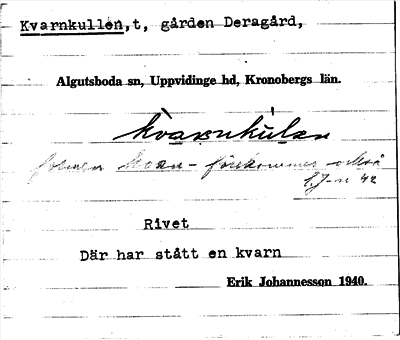 Kvarnkullen,t, gården Deragård,
Algutsboda sn, Uppvidinge hd, Kronobergs län.
kvarnkulan
formen kvan - förekommer också
E.J-n 42
Rivet
Där har stått en kvarn
Erik Johannesson 1940.